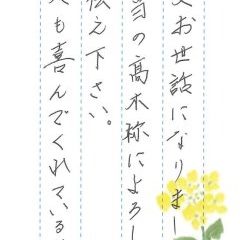 お世話になりまし
当の高木称によろし
伝え下さい。
も喜んでくれている